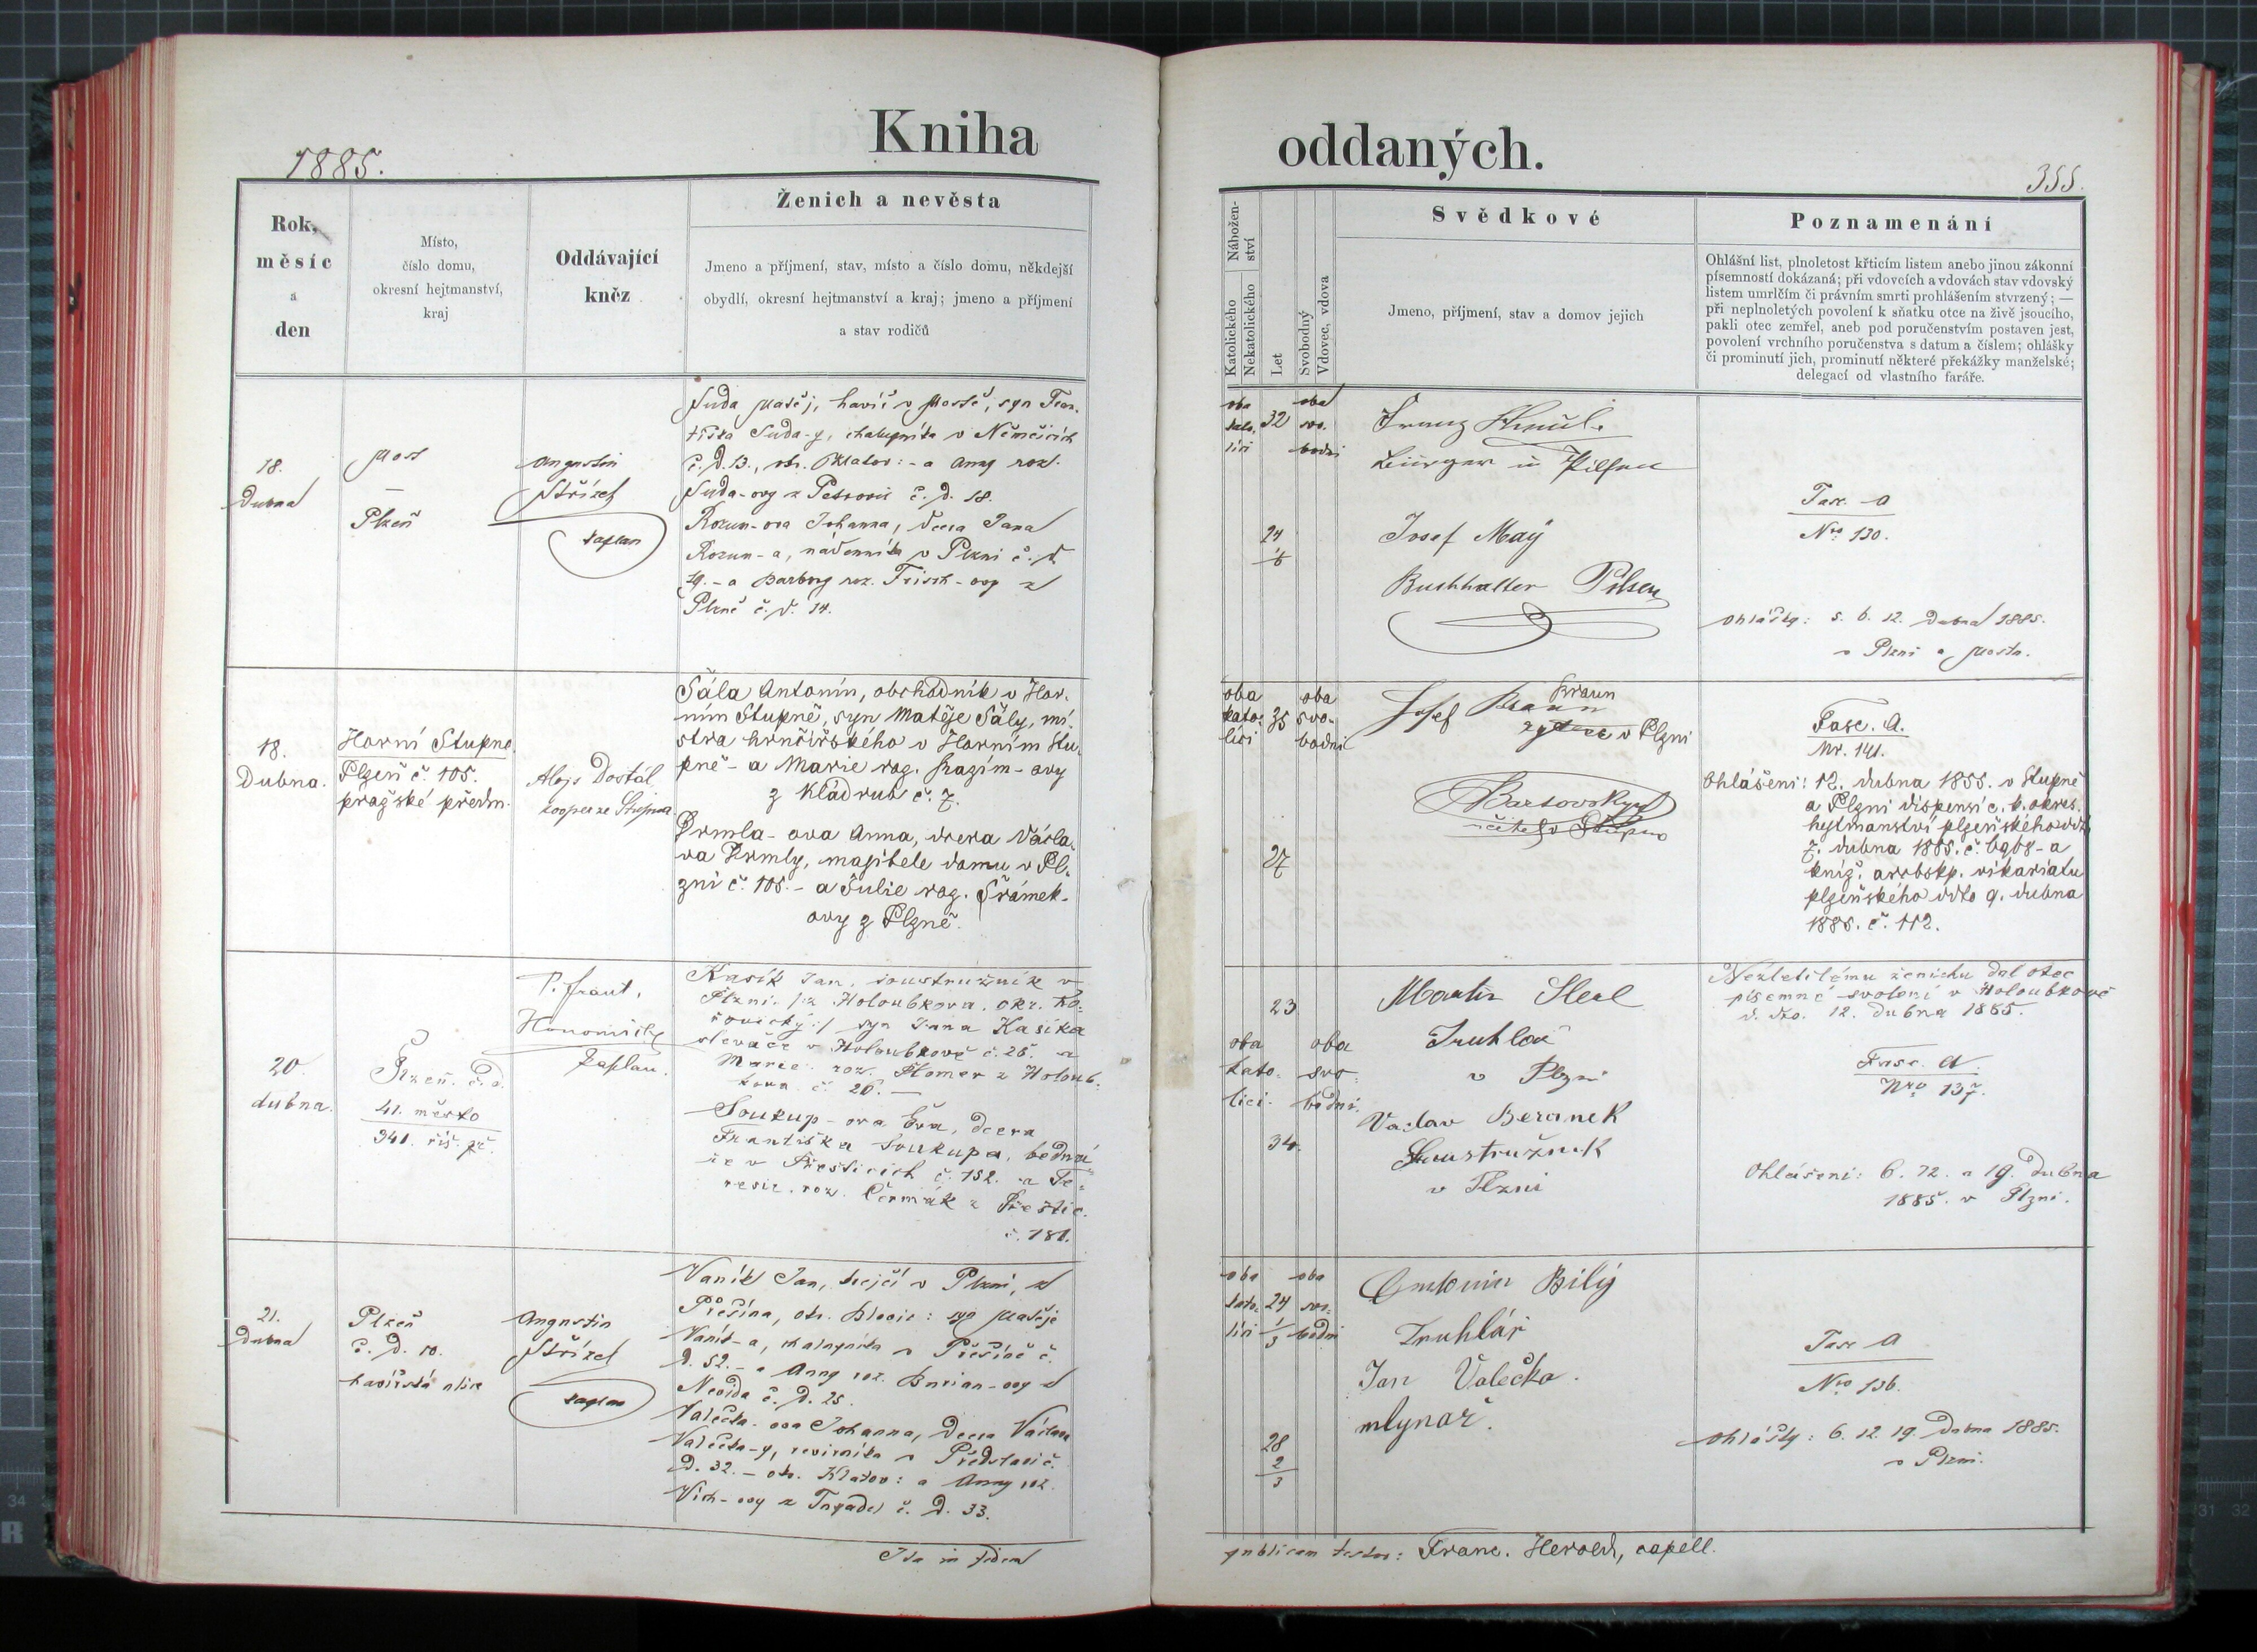 Kniha
1885.
Rok,
měsíc
a
den
Místo,
číslo domu,
okresní hejtmanství,
kraj
Oddávající
kněz
Ženich a nevěsta
Jmeno a příjmení, stav, místo a číslo domu, někdejší
obydlí, okresní hejtmanství a kraj; jmeno a příjmení
a stav rodičů
18.
Dubna
Most
Plzeň
Augustin
Střízek
kaplan
Suda Matěj, havíř v Mostě, syn Fran-
tiška Suda-y, chalupníka v Němčicích
č. d. 13., okr. Klatov: - a Anny roz.
Suda-ovy z Petrovic č. d. 18.
Rozum-ova Johanna, dcera Jana
Rozum-a, nádenníka v Plzni č. d.
19. - a Barbory roz. Frisch-ovy z
Plzně č. d. 14.
18.
Dubna.
Horní Stupno
Plzeň č. 105.
pražské předm.
Alojs Dostál
kooper ze Stupna
Šála Antonín, obchodník v Hor-
ním Stupně, syn Matěje Šály, mi-
stra hrnčířského v Horním Stu-
pně - a Marie roz. Kazím-ovy
z Kladrub č. 7.
Drmla-ova Anna, dcera Václa-
va Drmly, majitele domu v Pl-
zni č. 105. - a Julie roz. Šrámek-
ovy z Plzně.
20.
dubna.
Plzeň. č. d.
41. město
341. říš. př.
P. Frant.
kaplan.
Kasík Jan, soustružník v
Plzni. /:z Holoubkova. okr. Ho-
řovický:/ syn Jana Kasíka
slevače v Holoubkově č. 28. a
Marie roz. Plomer z Holoub-
kova č. 20. —
Soukup-ova Eva, dcera
Františka Soukupa, bedná-
ře v Přešticích č. 152. a Te-
resie. roz. Čermák z Přeštic.
č. 181.
21.
Dubna
Plzeň
č. d. 10.
havířská ulice
Augustin
Střízek
kaplan
Vaník Jan, krejčí v Plzni, z
Přešína, okr. Blovic: syn Matěje
Vaník-a, chalupníka v Přešíně č.
d. 52. - a Anny roz. Burian-ovy z
Nevida č. d. 25.
Valečka-ova Johanna, dcera Václava
Valečka-y, revírníka v Předslavi č.
d. 32. - okr. Klatov: a Anny roz.
Vích-ovy z č. d. 33.
Ita in fidem
oddaných.
355.
Nábožen-
ství
Katolického
Nekatolického
Let
Svobodný
Vdovec, vdova
Svědkové
Jmeno, příjmení, stav a domov jejich
Poznamenání
Ohlášní list, plnoletost křticím listem anebo jinou zákonní
písemností dokázaná; při vdovcích a vdovách stav vdovský
listem umrlčím či právním smrti prohlášením stvrzený; —
při neplnoletých povolení k sňatku otce na živě jsoucího,
pakli otec zemřel, aneb pod poručenstvím postaven jest,
povolení vrchního poručenstva s datum a číslem; ohlášky
či prominutí jich, prominutí některé překážky manželské;
delegací od vlastního faráře.
oba oba
kato- 32 svo-
líci bodni
Franz
Bürger in Pilsen
24
1/6
Josef Maÿ
Buchhalter Pilsen
Fasc. A
Nro 130.
Ohlášky: 5. 6. 12. Dubna 1885.
v Plzni a Mostu.
oba oba
kato- 35 svo-
líci bodni
Josef Braun
Braun
v Plzni
27
Bartovský
učitel v Stupno
Fasc. A.
Nr. 141.
Ohlášení: 12. dubna 1855. v Stupně
a Plzni dispensí c. k. okres.
hejtmanství plzeňského ddto
7. dubna 1885. č. 6968 - a
kníž. arcibskp. vikariatu
plzeňského ddto 9. dubna
1885. č. 112.
23
oba oba
kato- svo-
líci. bodni.
34.
Martin
Truhlář
v Plzni
Vaclav Beranek
Soustružník
v Plzni
Nezletilému ženichu dal otec
písemné svolení v Holoubkově
d. dto. 12. dubna 1885.
Fasc. A.
Nro 137.
Ohlášeni: 6. 12. a 19. Dubna
1885. v Plzni.
oba oba
kato- 24 svo-
líci 1/3 bodni
Antonin Bilý
Truhlář
Jan Valečka.
mlynař.
28
2/3
Fasc A
Nro 136.
Ohlášky: 6. 12. 19. Dubna 1885.
v Plzni.
publicam testor: Franc. Herold, capell.